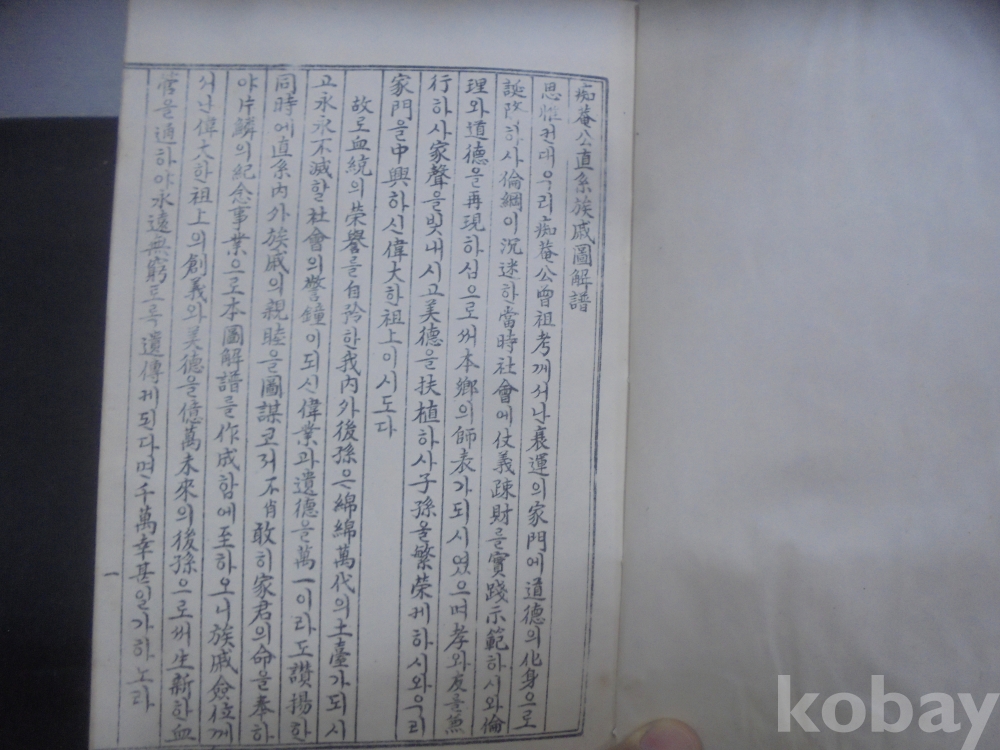 痴菴公直系族戚圖解譜
思惟컨대우리痴菴公曾祖考께서난衰運의家門에道德의化身으로
誕降하사倫綱이沉迷한當時社會에仗義疎財를實踐示範하시와倫
理와道德을再現하심으로써本鄕의師表가되시였으며孝와友를兼
行하사家聲을빛내시고美德을扶植하사子孫을繁榮케하시와우리
家門을中興하신偉大한祖上이시도다
故로血統의榮譽를自矜한我內外後孫은綿綿萬代의土臺가되시
고永永不滅할社會의警鐘이되신偉業과遺德을萬一이라도讚揚한
同時에直系內外族戚의親睦을圖謀코저不肖敢히家君의命을奉하
야片鱗의紀念事業으로本圖解譜를作成함에至하오니族戚僉位께
서난偉大한祖上의創義와美德을億萬未來의後孫으로써生新한血
管을通하야永遠無窮토록遺傳케된다면千萬幸甚일가하노라
一
kobay